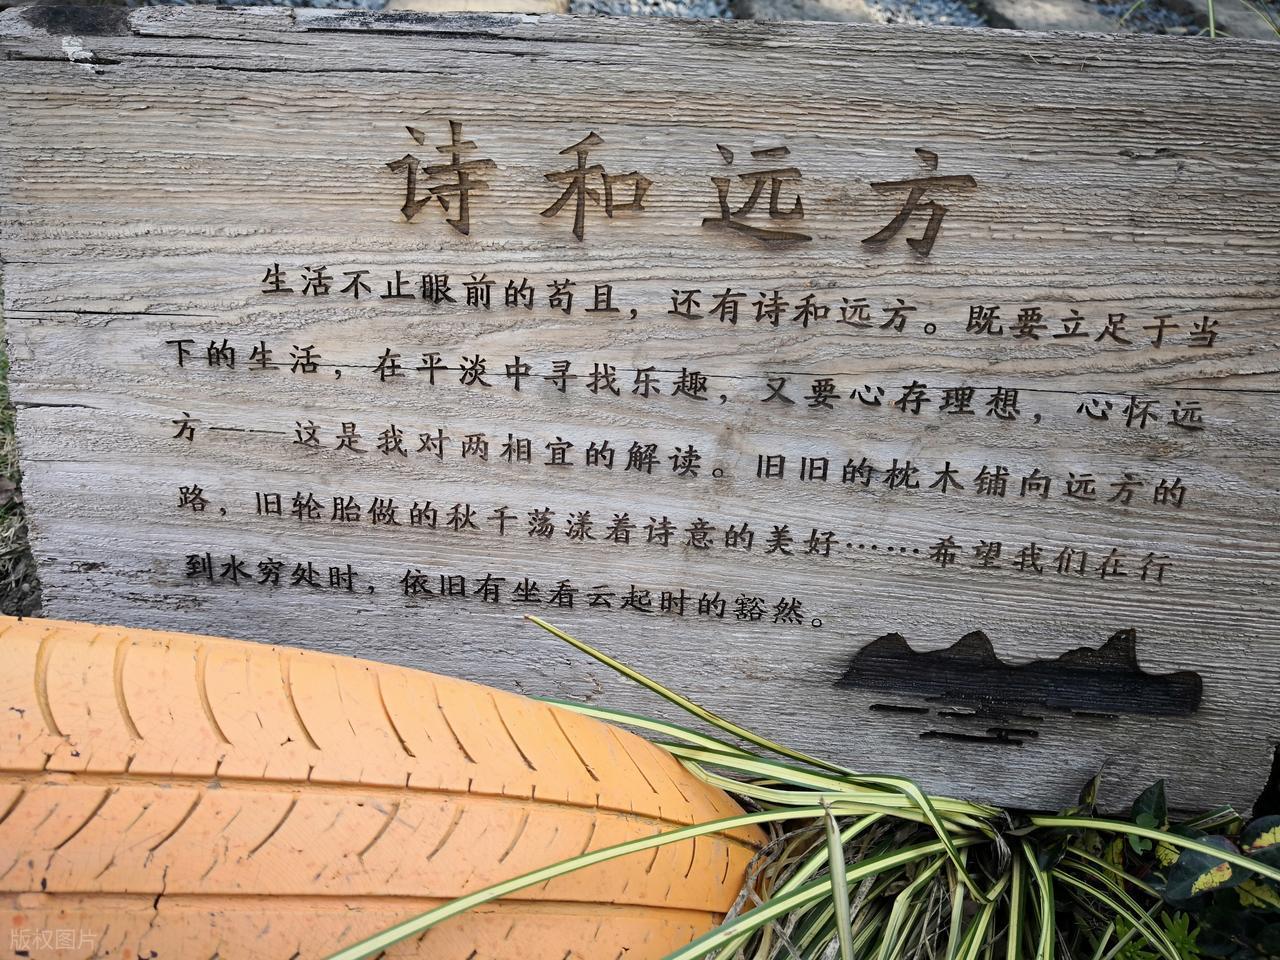 诗和远方
生活不止眼前的苟且，还有诗和远方。既要立足于当
下的生活，在平淡中寻找乐趣，又要心存理想，心怀远
方——这是我对两相宜的解读。旧旧的枕木铺向远方的
路，旧轮胎做的秋千荡漾着诗意的美好……希望我们在行
到水穷处时，依旧有坐看云起时的豁然。
版权图片